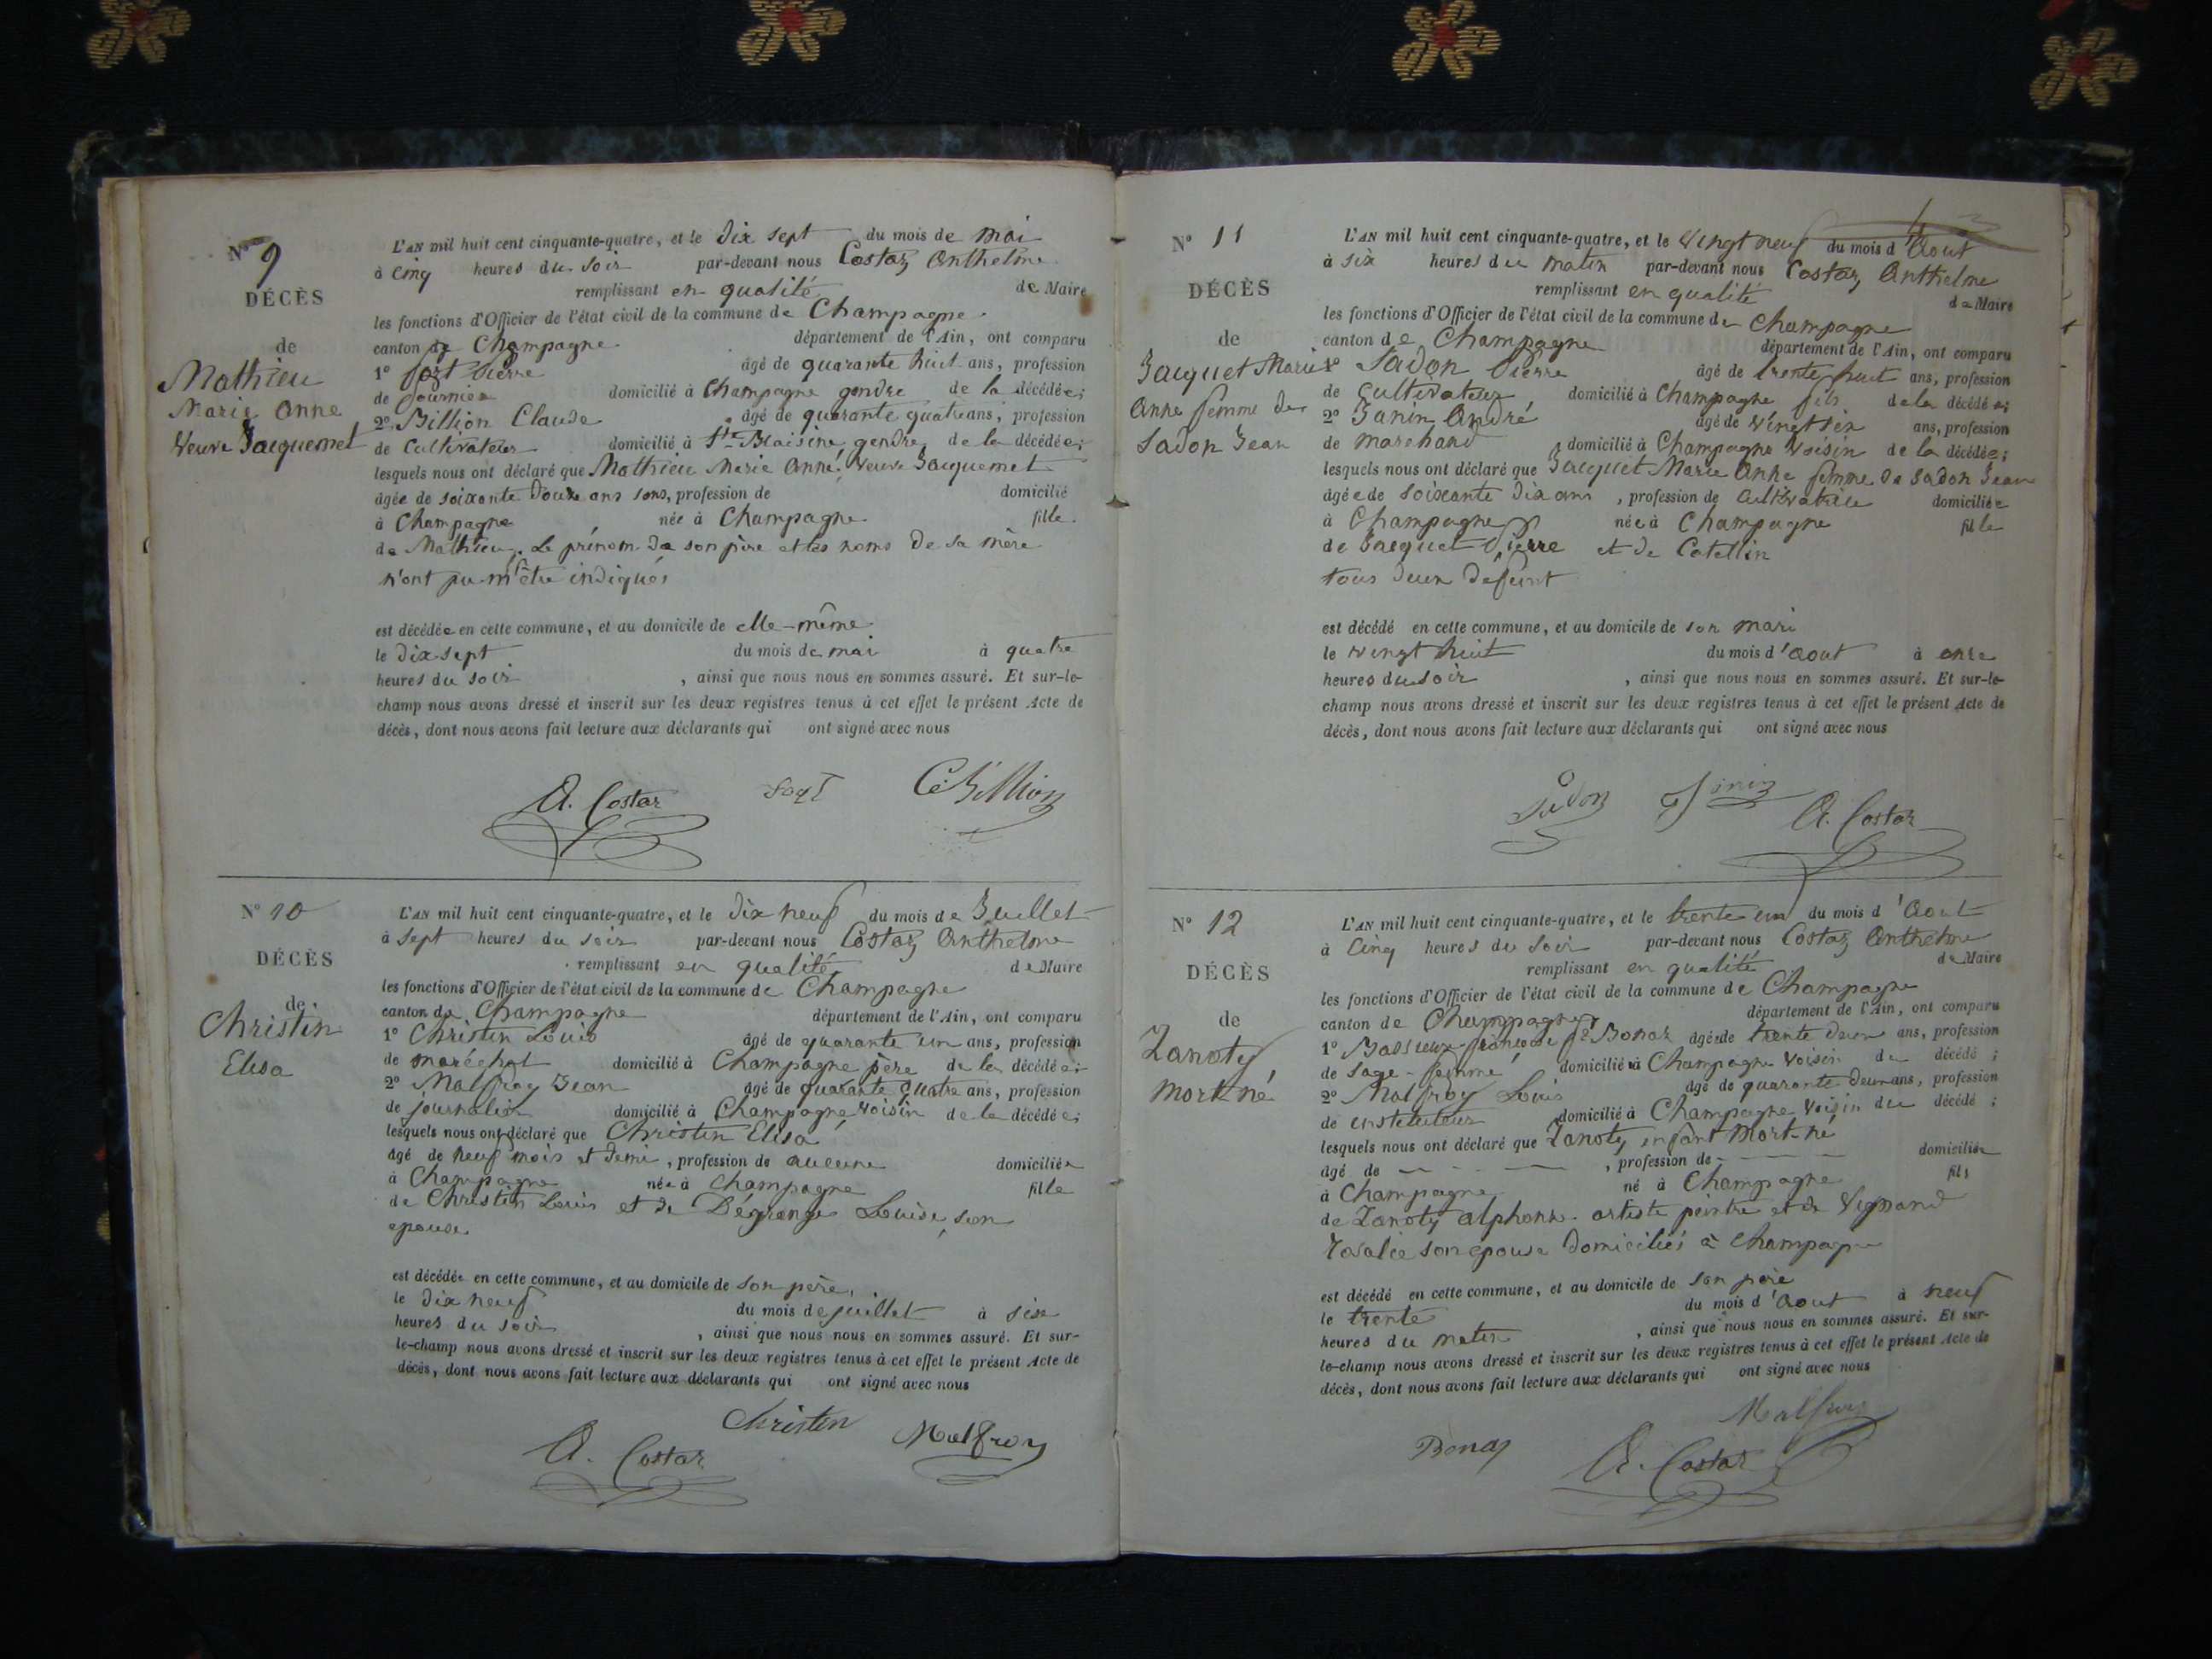 N° 9
DÉCÈS
de
Mathieu
Marie Anne
Veuve Jacquemet
L'AN mil huit cent cinquante-quatre, et le dix sept du mois de mai
à cinq heures du soir par-devant nous Costaz Anthelme
remplissant en qualité de Maire
les fonctions d'Officier de l'état civil de la commune de Champagne
canton de Champagne département de l'Ain, ont comparu
1° Pierre âgé de quarante huit ans, profession
de fournier domicilié à Champagne gendre de la décédée;
2° Billion Claude âgé de quarante quatre ans, profession
de Cultivateur domicilié à gendre de la décédée;
lesquels nous ont déclaré que Mathieu Marie Anne, Veuve Jacquemet
âgée de soixante douze ans sans, profession de domicilié
à Champagne née à Champagne fille
de Mathieu. Le prénom de son père et les noms de sa mère
n'ont pu m'être indiqués
est décédée en cette commune, et au domicile de elle-même
le dix sept du mois de mai à quatre
heures du soir, ainsi que nous nous en sommes assuré. Et sur-le-
champ nous avons dressé et inscrit sur les deux registres tenus à cet effet le présent Acte de
décès, dont nous avons fait lecture aux déclarants qui ont signé avec nous
A. Costaz C. Billion
N° 10
DÉCÈS
de
Christin
Elisa
L'AN mil huit cent cinquante-quatre, et le dix neuf du mois de Juillet
à sept heures du soir par-devant nous Costaz Anthelme
remplissant en qualité de Maire
les fonctions d'Officier de l'état civil de la commune de Champagne
canton de Champagne département de l'Ain, ont comparu
1° Christin Louis âgé de quarante un ans, profession
de maréchal domicilié à Champagne père de la décédée;
2° Malfroy Jean âgé de quarante quatre ans, profession
de journalier domicilié à Champagne, voisin de la décédée;
lesquels nous ont déclaré que Christin Elisa
âgé de neuf mois et demi, profession de aucune domiciliée
à Champagne née à Champagne fille
de Christin Louis et de Dégrange Louise, son
epouse
est décédée en cette commune, et au domicile de son père,
le dix neuf du mois de juillet à six
heures du soir, ainsi que nous nous en sommes assuré. Et sur-
le-champ nous avons dressé et inscrit sur les deux registres tenus à cet effet le présent Acte de
décès, dont nous avons fait lecture aux déclarants qui ont signé avec nous
Christin Malfroy
A. Costaz
N° 11
DÉCÈS
de
Jacquet Marie
Anne femme de
Sadon Jean
L'AN mil huit cent cinquante-quatre, et le vingt neuf du mois d'Aout
à six heures du matin par-devant nous Costaz Anthelme
remplissant en qualité de Maire
les fonctions d'Officier de l'état civil de la commune de Champagne
canton de Champagne département de l'Ain, ont comparu
1° Sadon Pierre âgé de trente huit ans, profession
de Cultivateur domicilié à Champagne fils de la décédée;
2° Janin André âgé de vingt six ans, profession
de marchand domicilié à Champagne Voisin de la décédée;
lesquels nous ont déclaré que Jacquet Marie Anne femme de Sadon Jean
âgée de soixante dix ans, profession de cultivatrice domiciliée
à Champagne née à Champagne fille
de Jacquet Pierre et de Catellin
tous deux défunt
est décédé en cette commune, et au domicile de son mari
le vingt huit du mois d'Aout à onze
heures du soir, ainsi que nous nous en sommes assuré. Et sur-le-
champ nous avons dressé et inscrit sur les deux registres tenus à cet effet le présent Acte de
décès, dont nous avons fait lecture aux déclarants qui ont signé avec nous
Sadon Janin A. Costaz
N° 12
DÉCÈS
de
Zanoty
Mort-né
L'AN mil huit cent cinquante-quatre, et le trente un du mois d'Aout
à Cinq heures du soir par-devant nous Costaz Anthelme
remplissant en qualité de Maire
les fonctions d'Officier de l'état civil de la commune de Champagne
canton de Champagne département de l'Ain, ont comparu
1° françoise fe Bonaz âgée de trente deux ans, profession
de sage-femme domicilié à Champagne Voisin du décédé;
2° Malfroy Louis âgé de quarante deux ans, profession
de instituteur domicilié à Champagne Voisin du décédé;
lesquels nous ont déclaré que Zanoty enfant Mort-né
âgé de — — —, profession de — — — domiciliée
à Champagne né à Champagne fils
de Zanoty alphonse artiste peintre et de
Rosalie son epouse domiciliés à Champagne
est décédé en cette commune, et au domicile de son père
le trente du mois d'Aout à neuf
heures du matin, ainsi que nous nous en sommes assuré. Et sur-
le-champ nous avons dressé et inscrit sur les deux registres tenus à cet effet le présent Acte de
décès, dont nous avons fait lecture aux déclarants qui ont signé avec nous
Malfroy
Bonaz A. Costaz